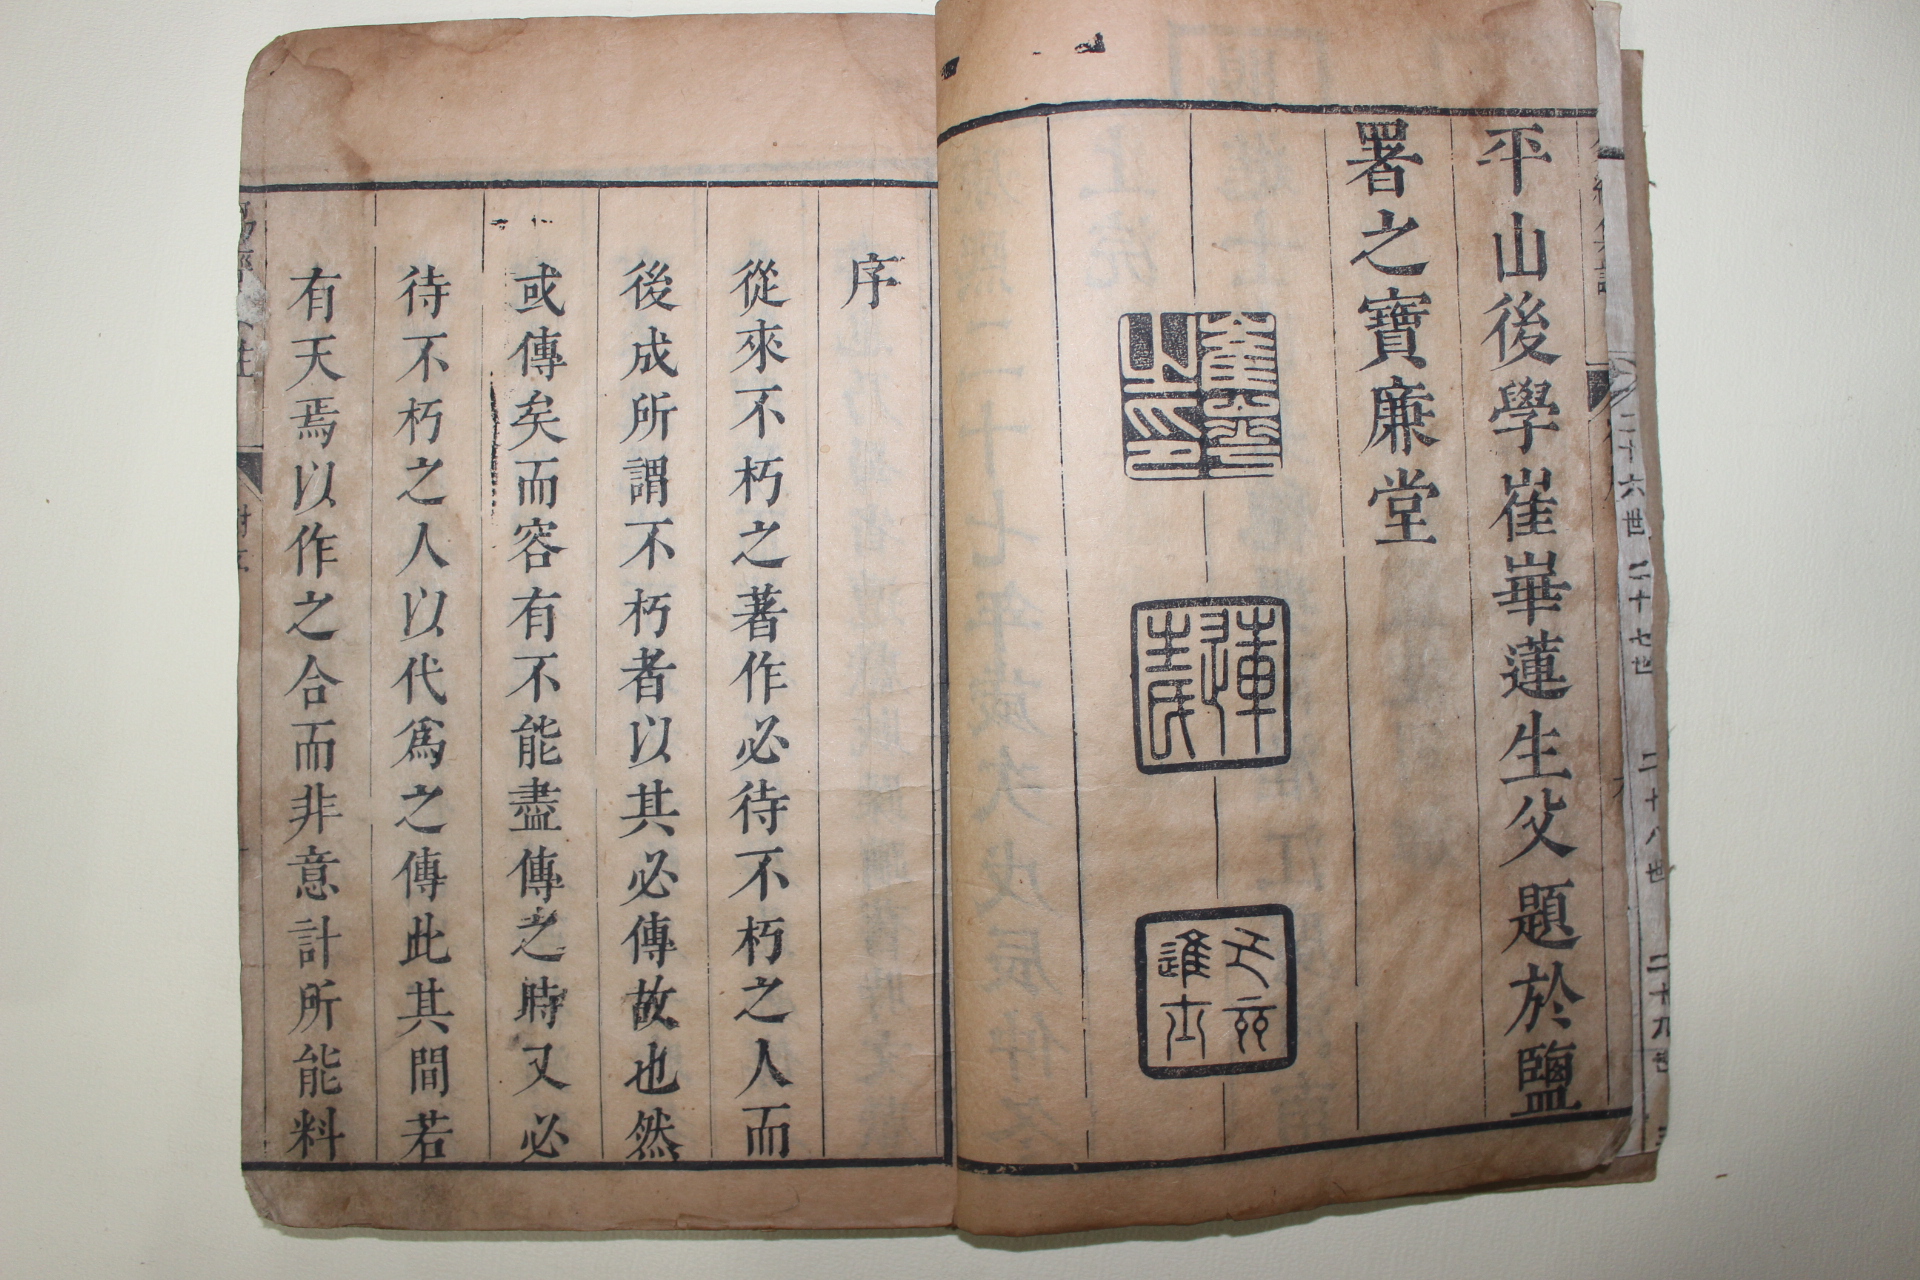 平山後學崔崋蓮生父題於鹽
署之寶廉堂
崔崋之印
蓮生氏
進士
序
從來不朽之著作必待不朽之人而
後成所謂不朽者以其必傳故也然
或傳矣而容有不能盡傳之時又必
待不朽之人以代爲之傳此其間若
有天焉以作之合而非意計所能料
二十六世
二十七世
二十八世